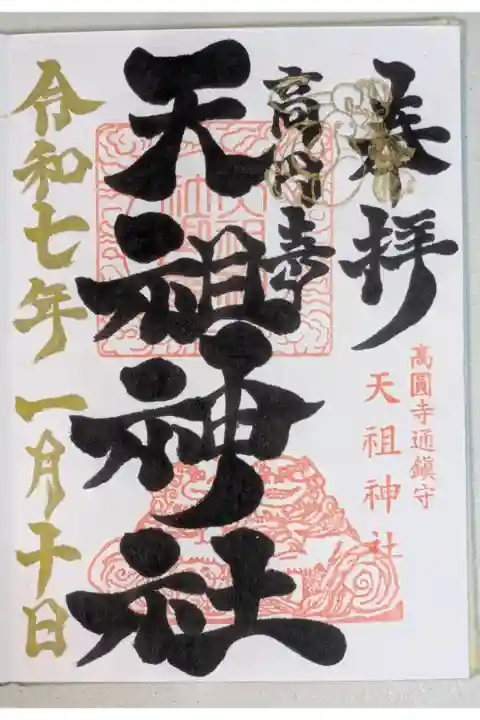 奉拝
高円寺
天祖神社
令和七年一月十日
高圓寺通鎮守
天祖神社